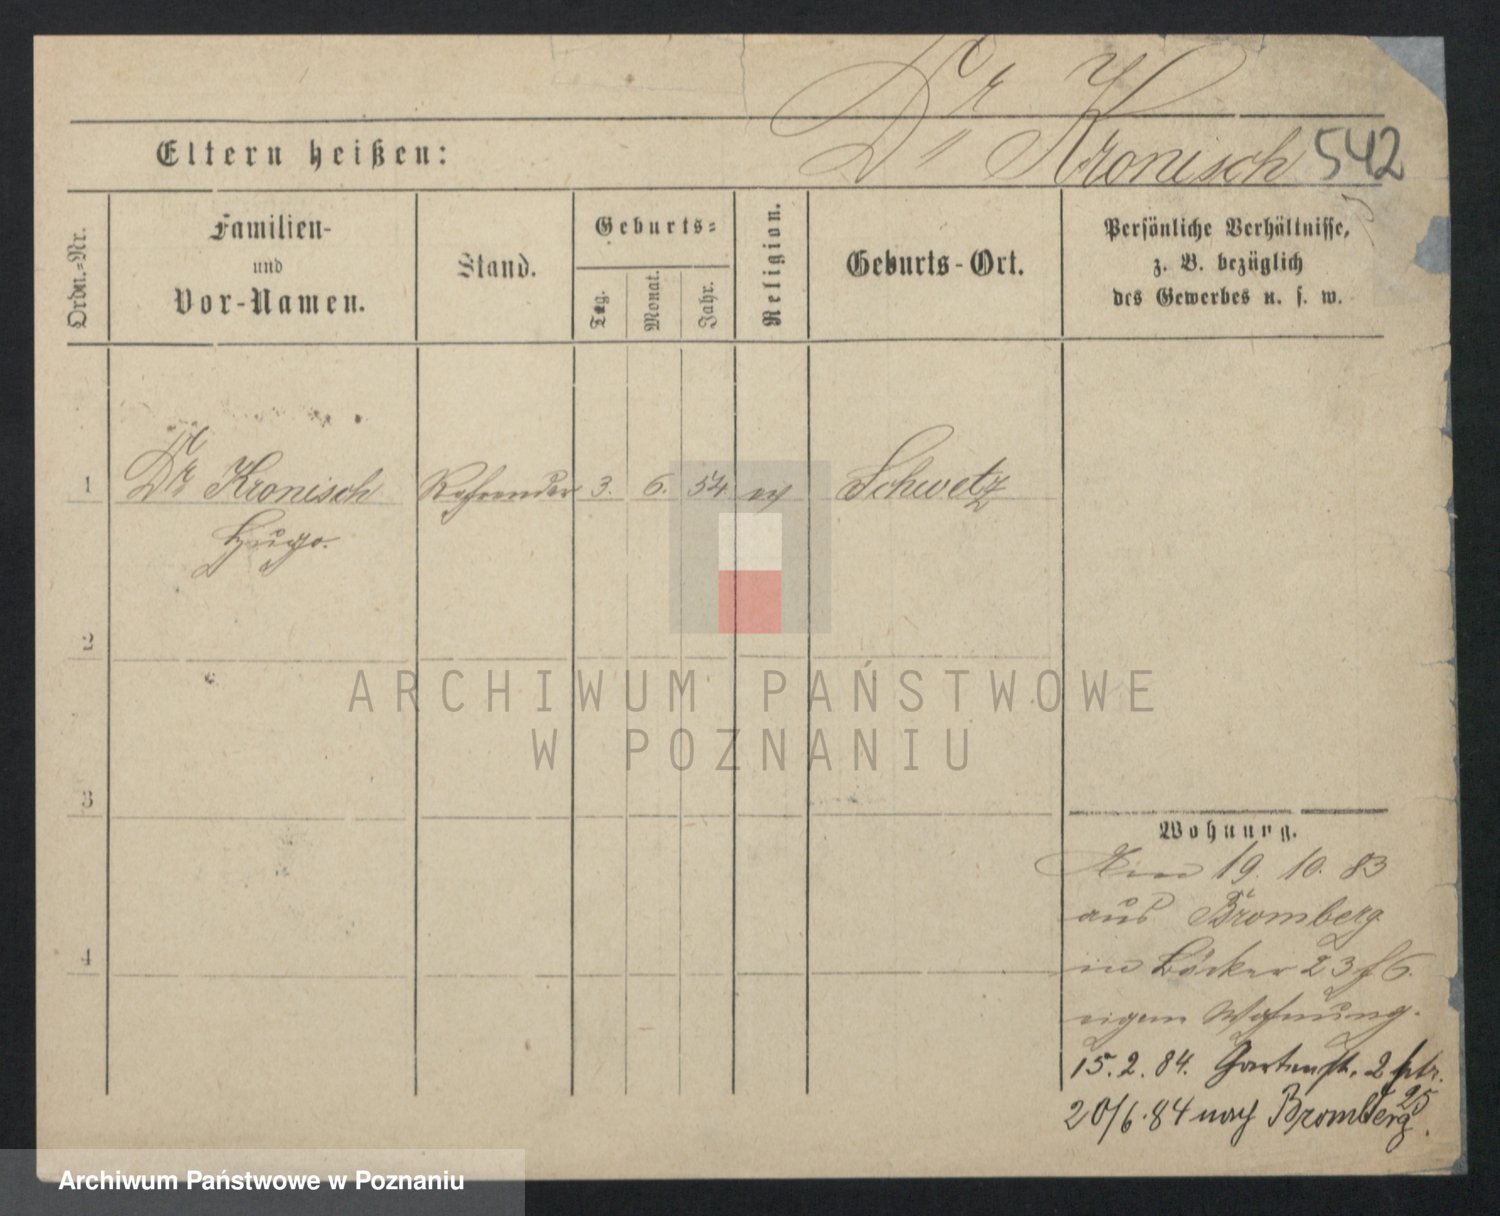 Dr Kronisch 542
Eltern heißen:
Ordn.-Nr.
Familien-
und
Vor-Namen.
Stand.
Geburts-
Tag.
Monat.
Jahr.
Religion.
Geburts-Ort.
Persönliche Verhältnisse,
z. B. bezüglich
des Gewerbes u. s. w.
1 Dr Kronisch 3. 6. 54 ev Schwetz
Hugo.
2
ARCHIWUM PAŃSTWOWE
W POZNANIU
3
Wohnung.
19. 10. 83
aus Bromberg
4
in Bäcker 23
eigene Wohnung.
15. 2. 84. Gartenstr. 2 ptr.
20/6. 84 nach Bromberg.
25
Archiwum Państwowe w Poznaniu